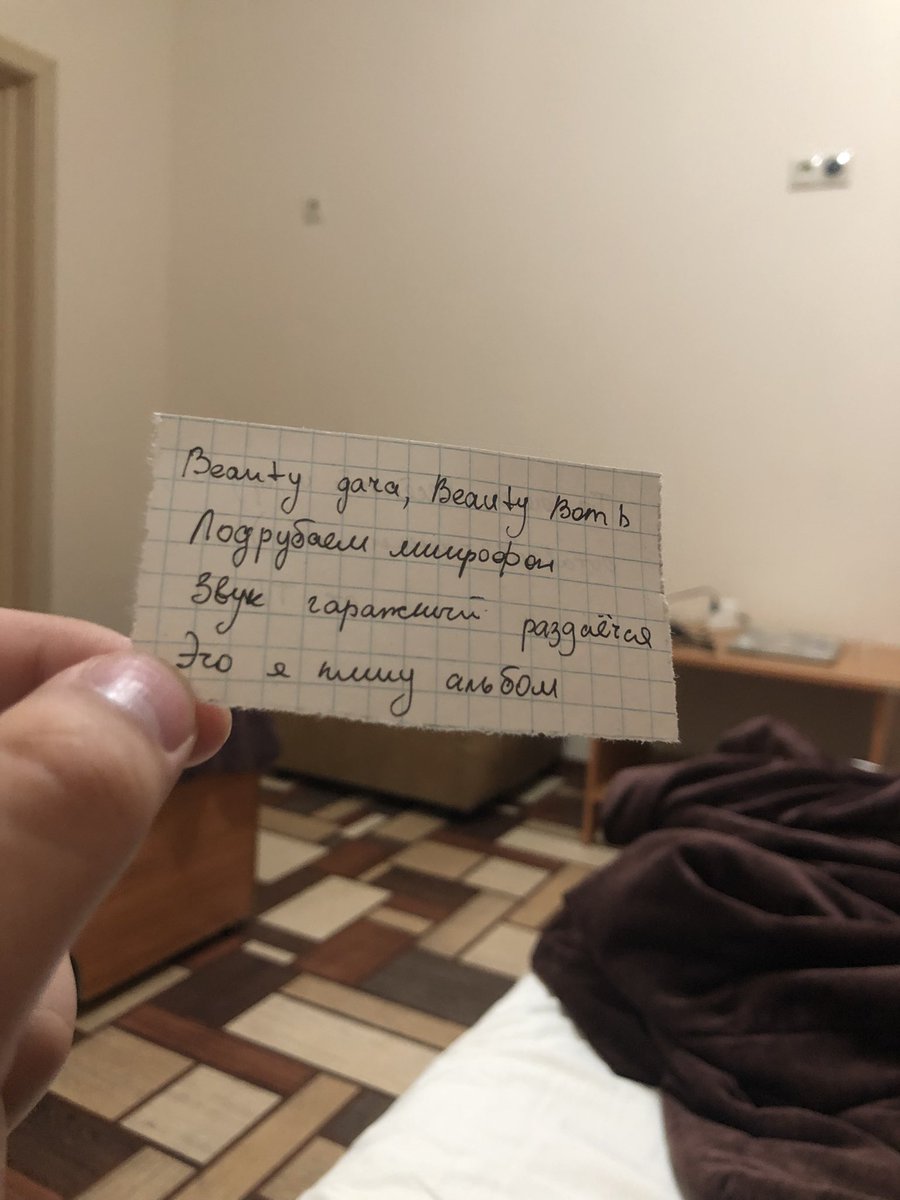 Beauty дача, Beauty Bomb
Подрубаем микрофон
Звук гаражный раздаётся
Это я пишу альбом